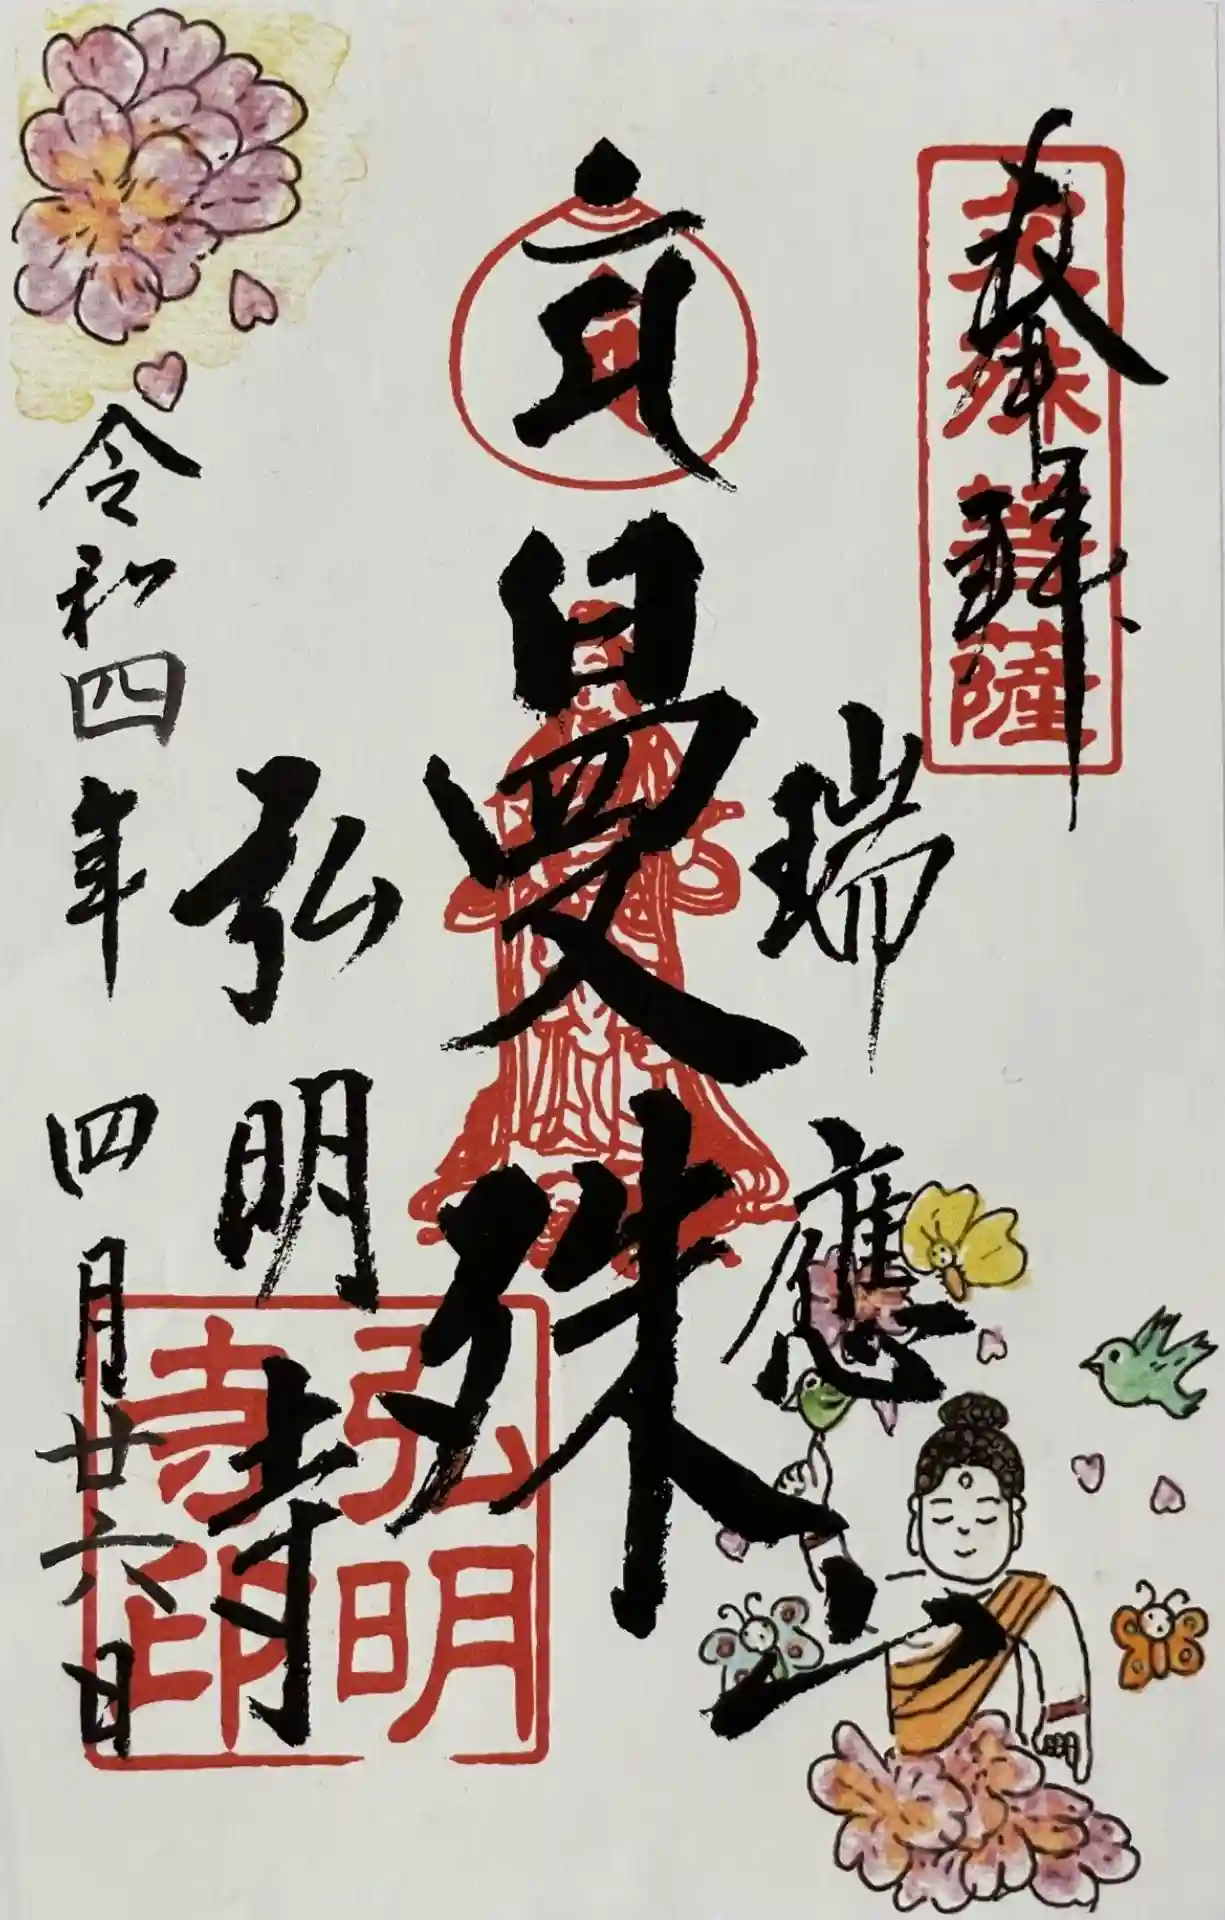 奉拝
文殊菩薩
瑞應山
曼殊
弘明寺
弘明寺印
令和四年四月廿六日